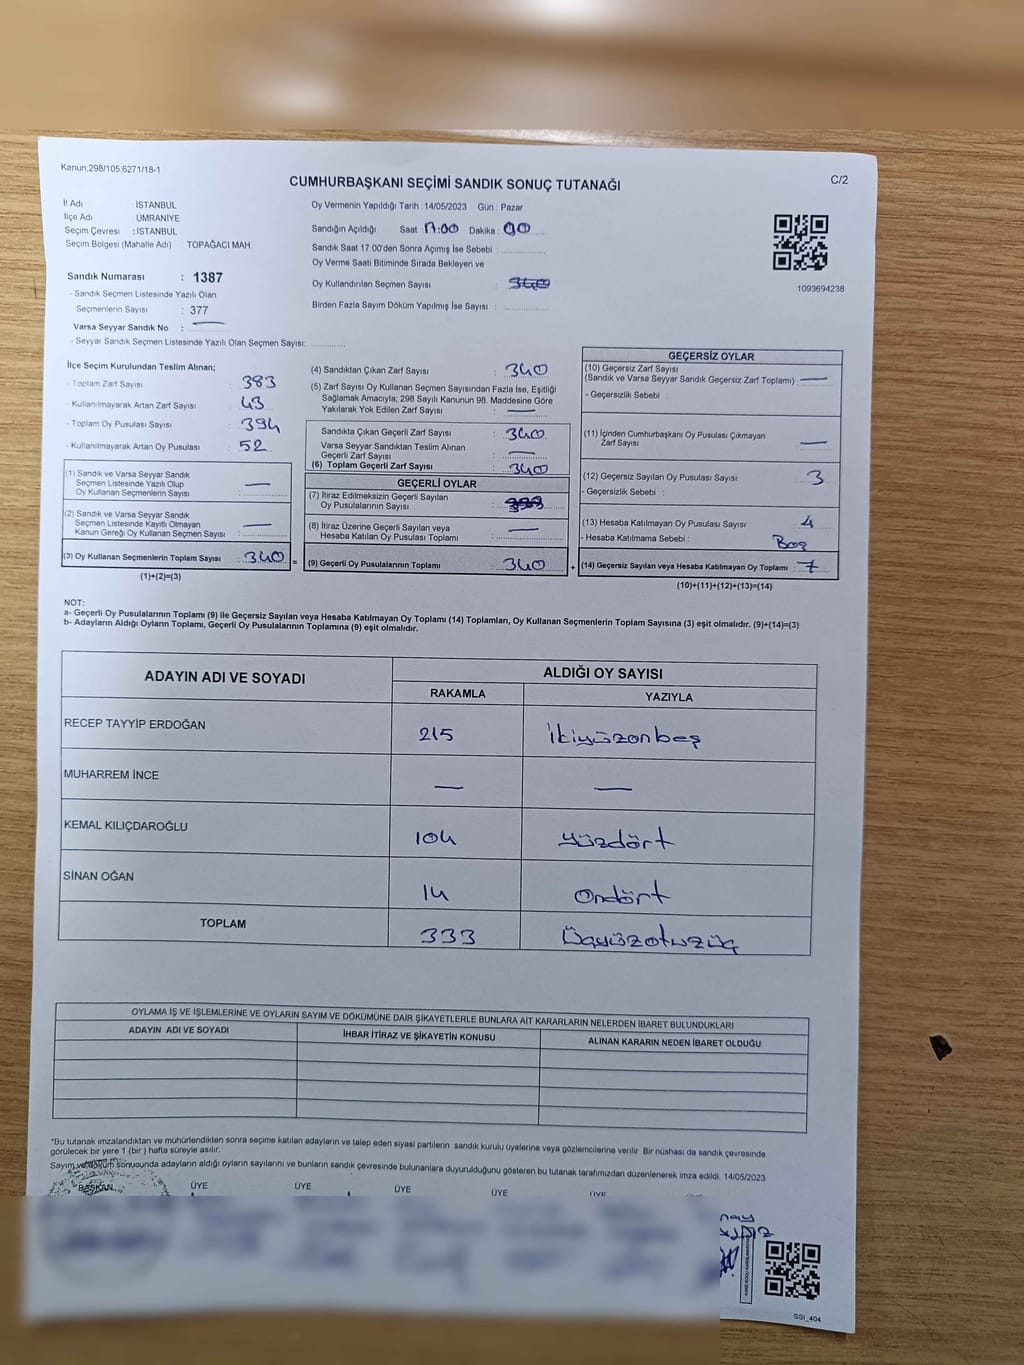 Kanun:298/105.6271/18-1
C/2
CUMHURBAŞKANI SEÇİMİ SANDIK SONUÇ TUTANAĞI
İl Adı : İSTANBUL
İlçe Adı : ÜMRANİYE
Seçim Çevresi : İSTANBUL
Seçim Bölgesi (Mahalle Adı) : TOPAĞACI MAH.
Sandık Numarası : 1387
- Sandık Seçmen Listesinde Yazılı Olan
Seçmenlerin Sayısı : 377
Varsa Seyyar Sandık No : —
- Seyyar Sandık Seçmen Listesinde Yazılı Olan Seçmen Sayısı: ............
Oy Vermenin Yapıldığı Tarih : 14/05/2023 Gün : Pazar
Sandığın Açıldığı Saat : 17:00 Dakika : 00
Sandık Saat 17:00'den Sonra Açımış İse Sebebi : ............
Oy Verme Saati Bitiminde Sırada Bekleyen ve
Oy Kullandırılan Seçmen Sayısı : 340
Birden Fazla Sayım Döküm Yapılmış İse Sayısı : ............
1093694238
İlçe Seçim Kurulundan Teslim Alınan;
- Toplam Zarf Sayısı : 383
- Kullanılmayarak Artan Zarf Sayısı : 43
- Toplam Oy Pusulası Sayısı : 394
- Kullanılmayarak Artan Oy Pusulası : 52
(1) Sandık ve Varsa Seyyar Sandık
Seçmen Listesinde Yazılı Olup
Oy Kullanan Seçmenlerin Sayısı : —
(2) Sandık ve Varsa Seyyar Sandık
Seçmen Listesinde Kayıtlı Olmayan
Kanun Gereği Oy Kullanan Seçmen Sayısı : —
(3) Oy Kullanan Seçmenlerin Toplam Sayısı : 340 =
(1)+(2)=(3)
(4) Sandıktan Çıkan Zarf Sayısı : 340
(5) Zarf Sayısı Oy Kullanan Seçmen Sayısından Fazla İse, Eşitliği
Sağlamak Amacıyla; 298 Sayılı Kanunun 98. Maddesine Göre
Yakılarak Yok Edilen Zarf Sayısı : —
Sandıkta Çıkan Geçerli Zarf Sayısı : 340
Varsa Seyyar Sandıktan Teslim Alınan
Geçerli Zarf Sayısı : —
(6) Toplam Geçerli Zarf Sayısı : 340
GEÇERLİ OYLAR
(7) İtiraz Edilmeksizin Geçerli Sayılan
Oy Pusulalarının Sayısı :
(8) İtiraz Üzerine Geçerli Sayılan veya
Hesaba Katılan Oy Pusulası Toplamı : —
(9) Geçerli Oy Pusulalarının Toplamı : 340 +
GEÇERSİZ OYLAR
(10) Geçersiz Zarf Sayısı
(Sandık ve Varsa Seyyar Sandık Geçersiz Zarf Toplamı) —
- Geçersizlik Sebebi :
(11) İçinden Cumhurbaşkanı Oy Pusulası Çıkmayan
Zarf Sayısı —
(12) Geçersiz Sayılan Oy Pusulası Sayısı : 3
- Geçersizlik Sebebi :
(13) Hesaba Katılmayan Oy Pusulası Sayısı : 4
- Hesaba Katılmama Sebebi : Boş
(14) Geçersiz Sayılan veya Hesaba Katılmayan Oy Toplamı : 7
(10)+(11)+(12)+(13)=(14)
NOT:
a- Geçerli Oy Pusulalarının Toplamı (9) ile Geçersiz Sayılan veya Hesaba Katılmayan Oy Toplamı (14) Toplamları, Oy Kullanan Seçmenlerin Toplam Sayısına (3) eşit olmalıdır. (9)+(14)=(3)
b- Adayların Aldığı Oyların Toplamı, Geçerli Oy Pusulalarının Toplamına (9) eşit olmalıdır.
ADAYIN ADI VE SOYADI
ALDIĞI OY SAYISI
RAKAMLA YAZIYLA
RECEP TAYYİP ERDOĞAN 215 İkiyüzonbeş
MUHARREM İNCE — —
KEMAL KILIÇDAROĞLU 104 yüzdört
SİNAN OĞAN 14 Ondört
TOPLAM 333 Üçyüzotuzüç
OYLAMA İŞ VE İŞLEMLERİNE VE OYLARIN SAYIM VE DÖKÜMÜNE DAİR ŞİKAYETLERLE BUNLARA AİT KARARLARIN NELERDEN İBARET BULUNDUKLARI
ADAYIN ADI VE SOYADI İHBAR İTİRAZ VE ŞİKAYETİN KONUSU ALINAN KARARIN NEDEN İBARET OLDUĞU
*Bu tutanak imzalandıktan ve mühürlendikten sonra seçime katılan adayların ve talep eden siyasi partilerin sandık kurulu üyelerine veya gözlemcilerine verilir. Bir nüshası da sandık çevresinde
görülecek bir yere 1 (bir ) hafta süreyle asılır.
Sayım ve döküm sonucunda adayların aldığı oyların sayılarını ve bunların sandık çevresinde bulunanlara duyurulduğunu gösteren bu tutanak tarafımızdan düzenlenerek imza edildi. 14/05/2023
BAŞKAN ÜYE ÜYE ÜYE ÜYE ÜYE
SSI_404